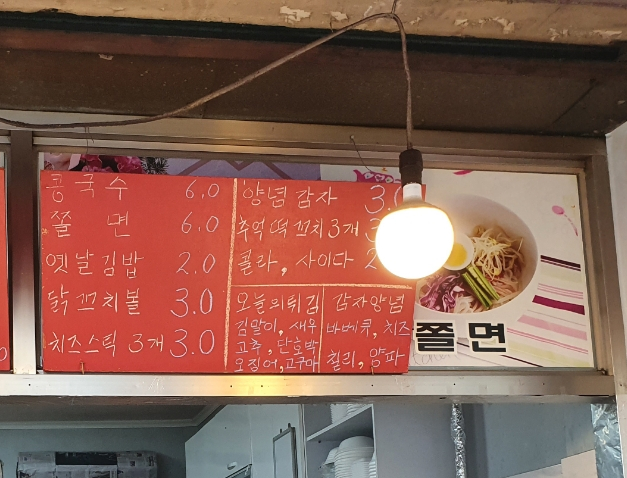 콩국수 6.0
쫄면 6.0
옛날김밥 2.0
닭꼬치볼 3.0
치즈스틱 3개 3.0
양념감자 3.
추억떡꼬치3개 3
콜라, 사이다 2
오늘의튀김
김말이, 새우
고추, 단호박
오징어, 고구마
감자양념
바베큐, 치즈
칠리, 양파
쫄면